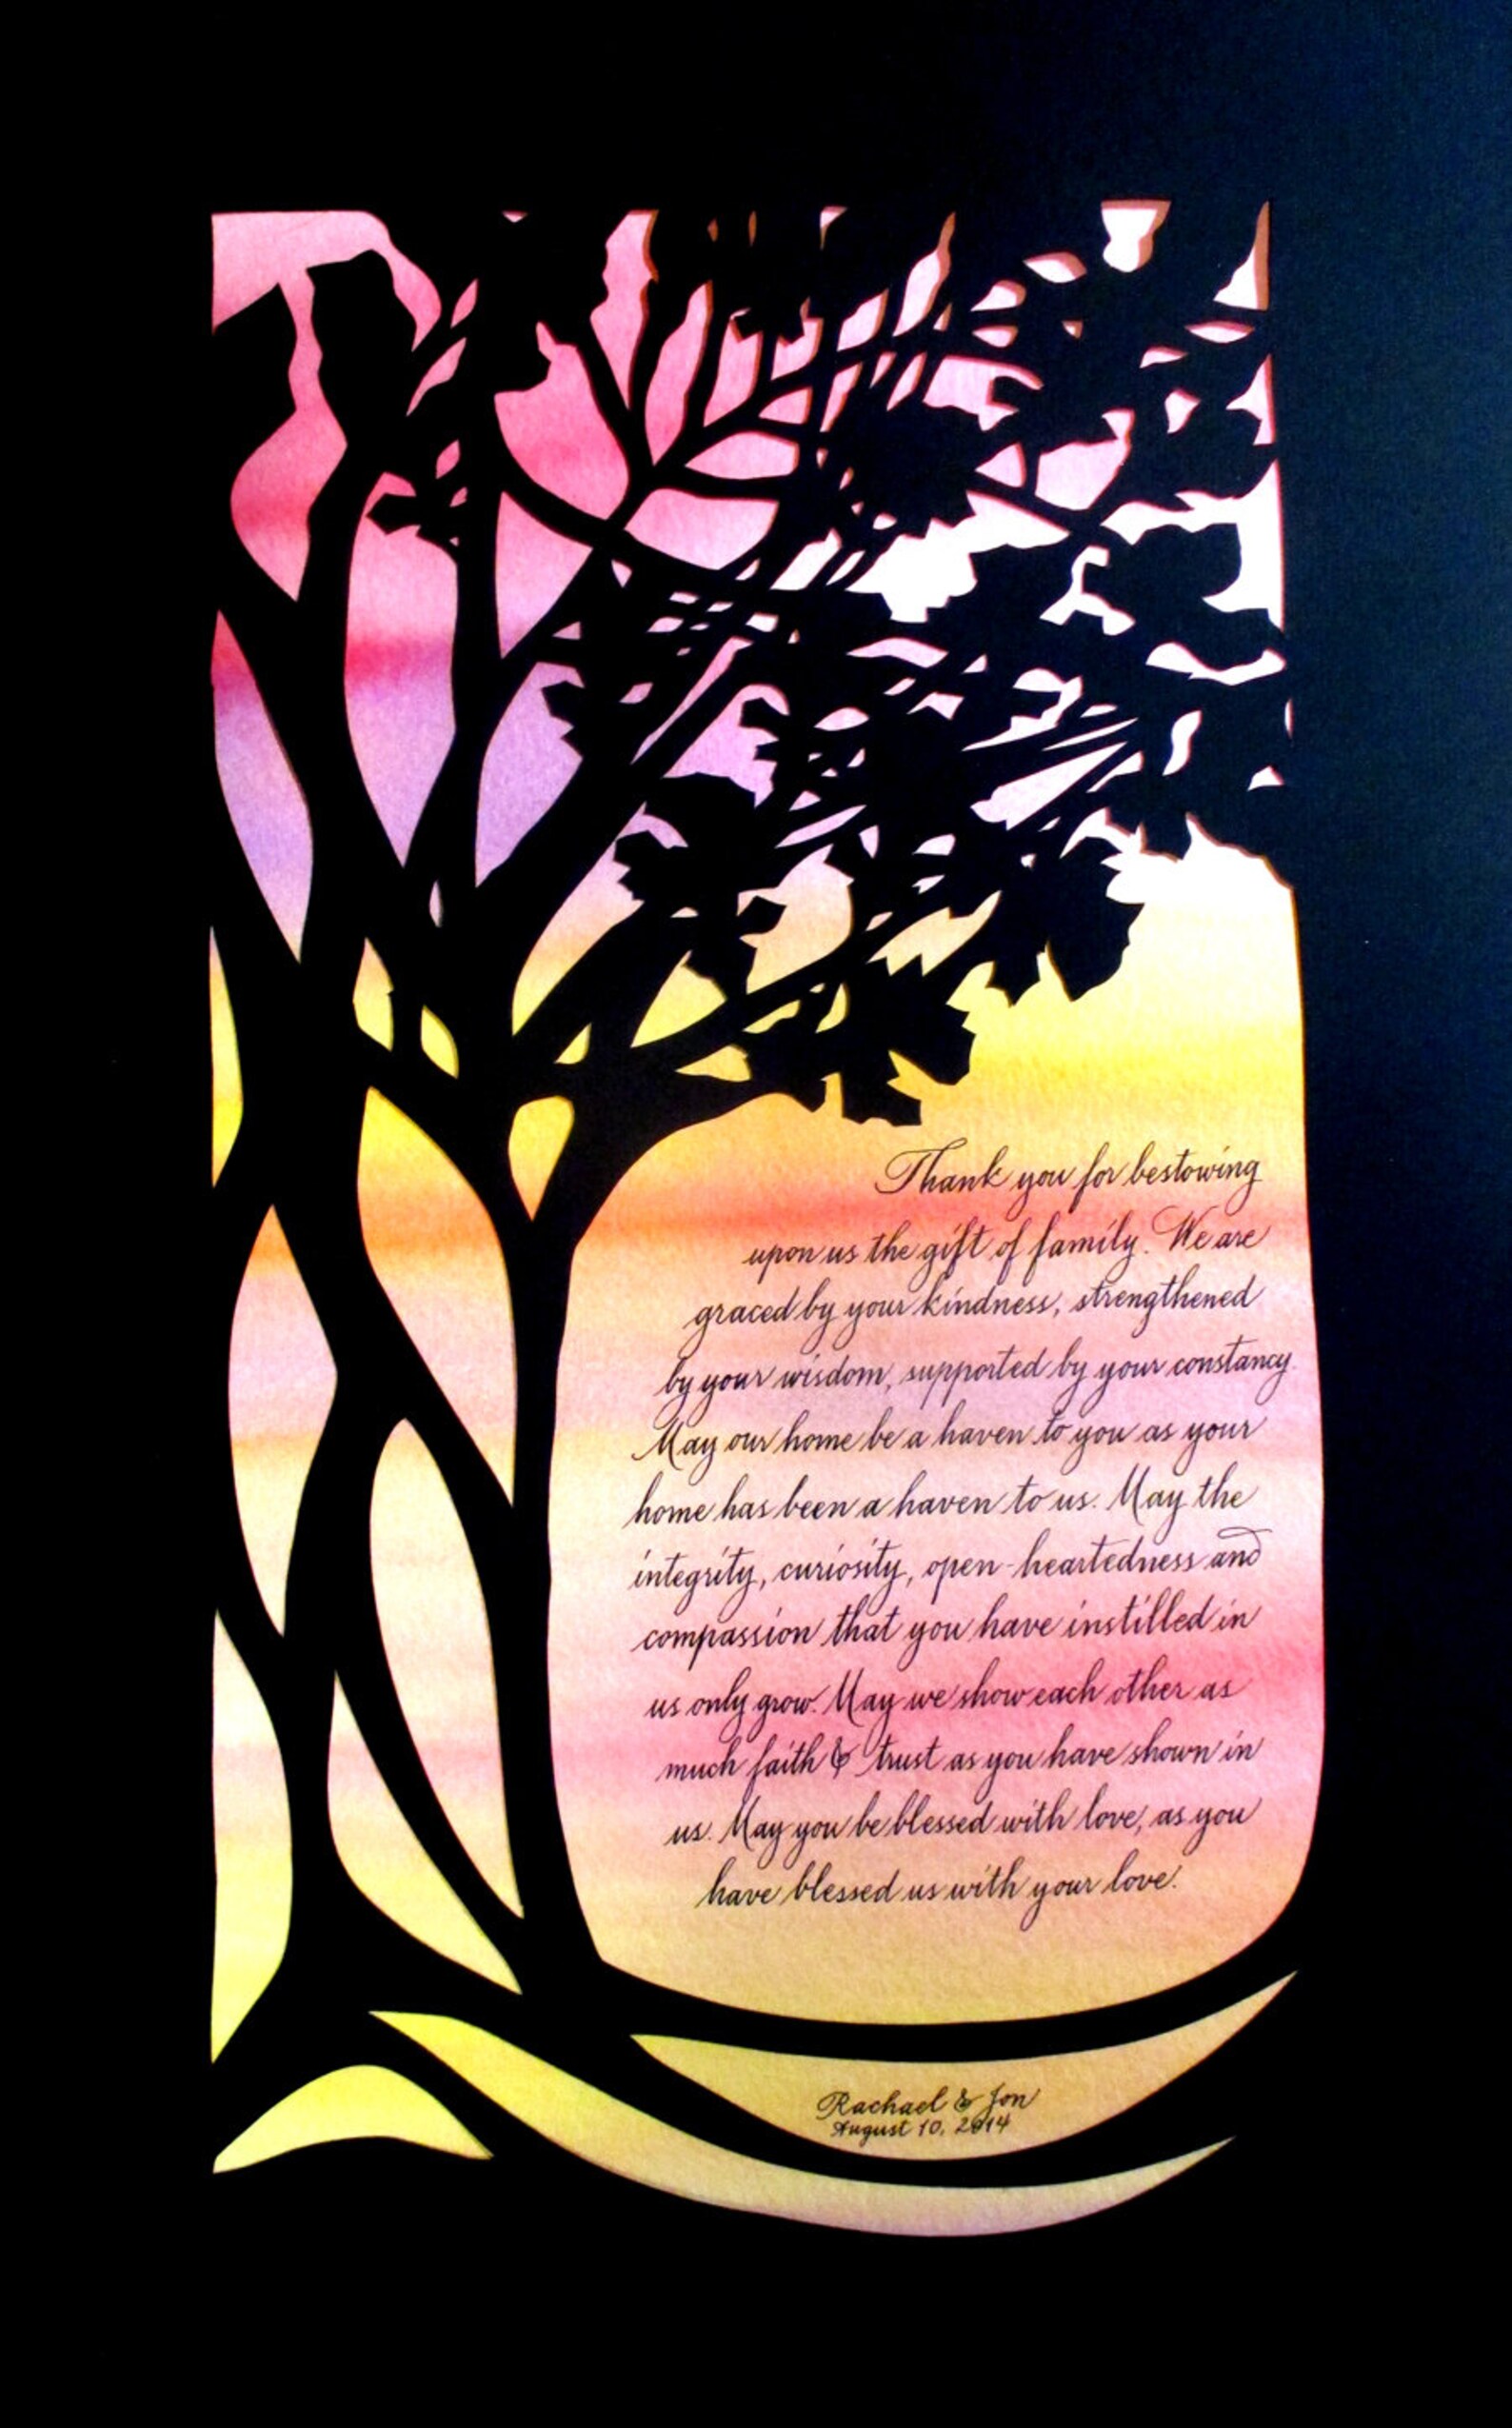 Thank you for bestowing
upon us the gift of family. We are
graced by your kindness, strengthened
by your wisdom, supported by your constancy.
May our home be a haven to you as your
home has been a haven to us. May the
integrity, curiosity, open-heartedness and
compassion that you have instilled in
us only grow. May we show each other as
much faith & trust as you have shown in
us. May you be blessed with love, as you
have blessed us with your love.
Rachael & Jon
August 10, 2014